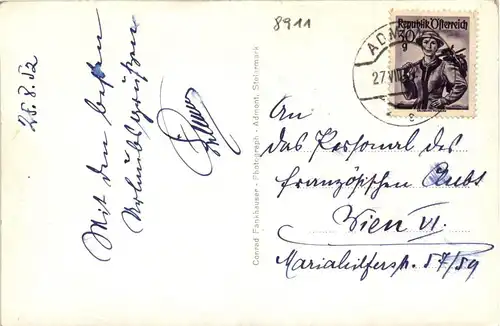 8911
25.8.52
Mit den besten
Urlaubsgrüßen
Conrad Fankhauser - Photograph - Admont, Steiermark
Republik Österreich
30
g
ADMO
27.VIII
An
das Personal des
französischen Klubs
Wien VI.
Mariahilferstr. 57/59